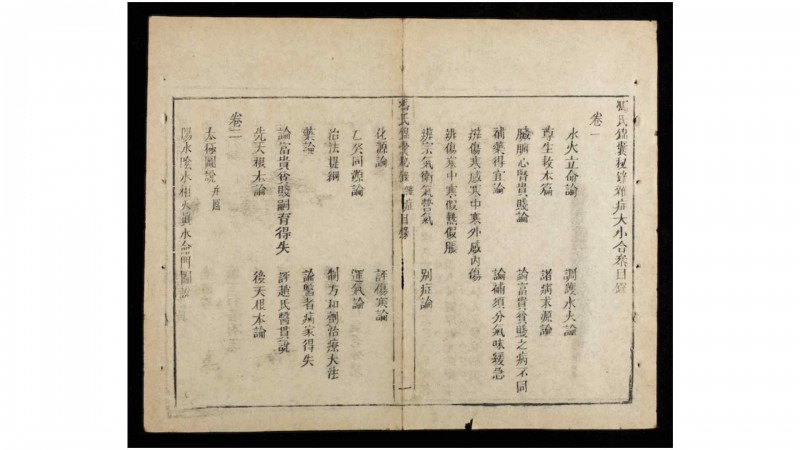 馮氏錦囊秘錄雜症大小合叅目錄
卷一
水火立命論 調護水火論
尊生救本篇 諸病求源論
臟腑心腎貴賤論 論富貴貧賤之病不同
補藥得宜論 論補須分氣味緩急
辨傷寒感寒中寒外感內傷
辨傷寒中寒假熱假脹
辨宗氣衛氣營氣 別症論
馮氏錦囊秘錄 雜症目錄
化源論 評傷寒論
乙癸同源論 運氣論
治法提綱 制方和劑治療大法
藥論 論醫者病家得失
論富貴貧賤嗣育得失 評趙氏醫貫說
先天根本論 後天根本論
卷二
太極圖說 并圖
陽水陰水相火真水命門圖說